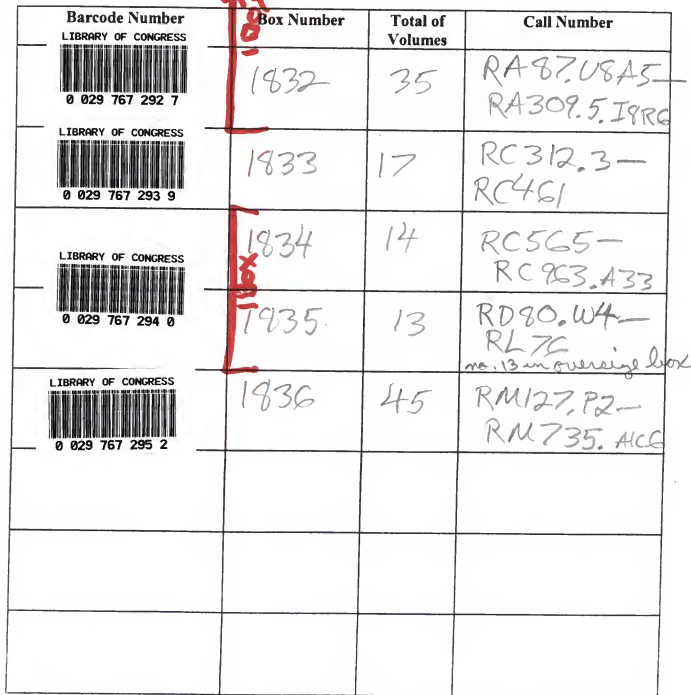 Barcode Number
Box Number
Total of
Volumes
Call Number
LIBRARY OF CONGRESS
0 029 767 292 7
1832
35
RA87.U8A5—
RA309.5.I8R6
LIBRARY OF CONGRESS
0 029 767 293 9
1833
17
RC312.3—
RC461
LIBRARY OF CONGRESS
0 029 767 294 0
1 Box
1834
14
RC565—
RC963.A33
1835
13
RD80.W4—
RL76
no. 13 in oversize box
LIBRARY OF CONGRESS
0 029 767 295 2
1836
45
RM127.P2—
RM735.A1C6